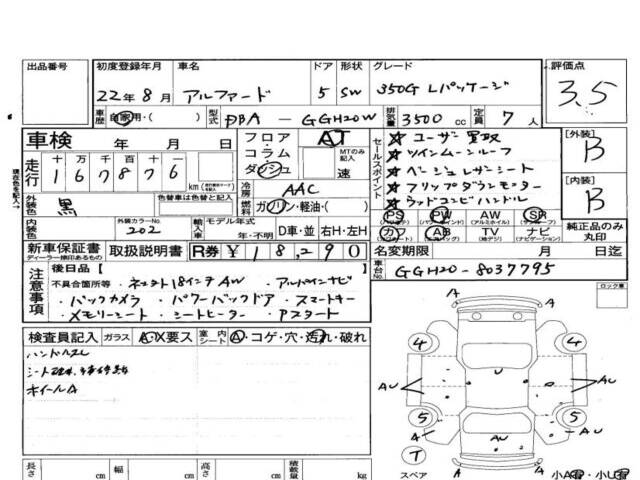 出品番号 初度登録年月 車名 ドア 形状 グレード 評価点
22年8月 アルファード 5 SW 350G Lパッケージ 3.5
車歴 自家用・( ) 型式 DBA - GGH20W 排気量 3500 cc 定員 7 人
車検 年 月 日
フロア・コラム・ダッシュ AT MTのみ記入 速
走行 十 万 千 百 十 一
167876 km
外装色 黒 色替車は色替と記入
冷房 AAC
燃料 ガソリン・軽油・( )
内装色 外装カラーNo. 202 輸入車 モデル年式 年・不明 D車・並 右H・左H
セールスポイント
★ユーザー買取
★ツインムーンルーフ
★ベージュレザーシート
★フリップダウンモニター
★ウッドコンビハンドル
[外装] B
[内装] B
PS PW AW SR
カワ AB TV ナビ
純正品のみ丸印
新車保証書 取扱説明書 R券 ¥18,290
ディーラー捺印あるもの
名変期限 月 日迄
車台No. GGH20-8037795
ロック車
注意事項
後日品 [ ]
不具合箇所等・ネクスト18インチAW・アルパインナビ
・バックカメラ・パワーバックドア・スマートキー
・メモリーシート・シートヒーター・Pスタート
検査員記入 ガラス A・X要ス 室内シート A・コゲ・穴・汚れ・破れ
ハンドルスレ
ホイールA
A A
4 4
AU AU
5 5
A AU AU
T
スペア A A 小A有・小U有
長さ cm 幅 cm 高さ cm 積載量 kg
現在色を記入→